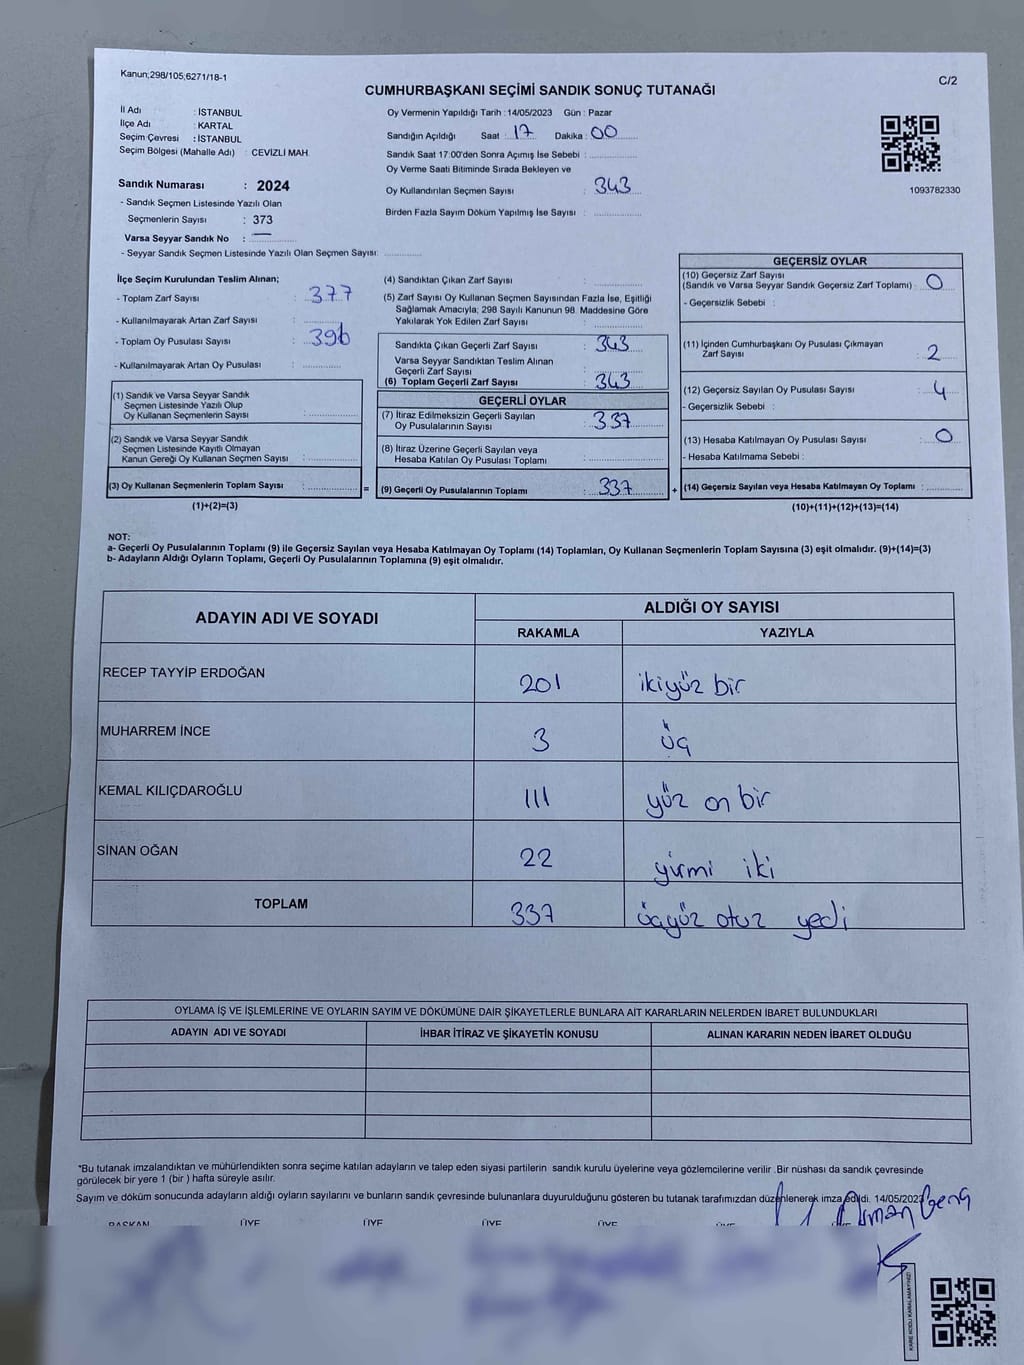 Kanun;298/105;6271/18-1
C/2
CUMHURBAŞKANI SEÇİMİ SANDIK SONUÇ TUTANAĞI
İl Adı : İSTANBUL
İlçe Adı : KARTAL
Seçim Çevresi : İSTANBUL
Seçim Bölgesi (Mahalle Adı) : CEVİZLİ MAH.
Sandık Numarası : 2024
- Sandık Seçmen Listesinde Yazılı Olan
Seçmenlerin Sayısı : 373
Varsa Seyyar Sandık No : —
- Seyyar Sandık Seçmen Listesinde Yazılı Olan Seçmen Sayısı:
Oy Vermenin Yapıldığı Tarih : 14/05/2023 Gün : Pazar
Sandığın Açıldığı Saat : 17 Dakika : 00
Sandık Saat 17:00'den Sonra Açımış İse Sebebi :
Oy Verme Saati Bitiminde Sırada Bekleyen ve
Oy Kullandırılan Seçmen Sayısı : 343
Birden Fazla Sayım Döküm Yapılmış İse Sayısı :
1093782330
İlçe Seçim Kurulundan Teslim Alınan;
- Toplam Zarf Sayısı : 377
- Kullanılmayarak Artan Zarf Sayısı :
- Toplam Oy Pusulası Sayısı : 396
- Kullanılmayarak Artan Oy Pusulası :
(1) Sandık ve Varsa Seyyar Sandık
Seçmen Listesinde Yazılı Olup
Oy Kullanan Seçmenlerin Sayısı :
(2) Sandık ve Varsa Seyyar Sandık
Seçmen Listesinde Kayıtlı Olmayan
Kanun Gereği Oy Kullanan Seçmen Sayısı :
(3) Oy Kullanan Seçmenlerin Toplam Sayısı : =
(1)+(2)=(3)
(4) Sandıktan Çıkan Zarf Sayısı :
(5) Zarf Sayısı Oy Kullanan Seçmen Sayısından Fazla İse, Eşitliği
Sağlamak Amacıyla; 298 Sayılı Kanunun 98. Maddesine Göre
Yakılarak Yok Edilen Zarf Sayısı :
Sandıkta Çıkan Geçerli Zarf Sayısı : 343
Varsa Seyyar Sandıktan Teslim Alınan
Geçerli Zarf Sayısı :
(6) Toplam Geçerli Zarf Sayısı : 343
GEÇERLİ OYLAR
(7) İtiraz Edilmeksizin Geçerli Sayılan
Oy Pusulalarının Sayısı : 337
(8) İtiraz Üzerine Geçerli Sayılan veya
Hesaba Katılan Oy Pusulası Toplamı :
(9) Geçerli Oy Pusulalarının Toplamı : 337 +
GEÇERSİZ OYLAR
(10) Geçersiz Zarf Sayısı
(Sandık ve Varsa Seyyar Sandık Geçersiz Zarf Toplamı) : 0
- Geçersizlik Sebebi :
(11) İçinden Cumhurbaşkanı Oy Pusulası Çıkmayan
Zarf Sayısı : 2
(12) Geçersiz Sayılan Oy Pusulası Sayısı : 4
- Geçersizlik Sebebi :
(13) Hesaba Katılmayan Oy Pusulası Sayısı : 0
- Hesaba Katılmama Sebebi :
(14) Geçersiz Sayılan veya Hesaba Katılmayan Oy Toplamı :
(10)+(11)+(12)+(13)=(14)
NOT:
a- Geçerli Oy Pusulalarının Toplamı (9) ile Geçersiz Sayılan veya Hesaba Katılmayan Oy Toplamı (14) Toplamları, Oy Kullanan Seçmenlerin Toplam Sayısına (3) eşit olmalıdır. (9)+(14)=(3)
b- Adayların Aldığı Oyların Toplamı, Geçerli Oy Pusulalarının Toplamına (9) eşit olmalıdır.
ADAYIN ADI VE SOYADI ALDIĞI OY SAYISI
RAKAMLA YAZIYLA
RECEP TAYYİP ERDOĞAN 201 ikiyüz bir
MUHARREM İNCE 3 üç
KEMAL KILIÇDAROĞLU 111 yüz on bir
SİNAN OĞAN 22 yirmi iki
TOPLAM 337 üçyüz otuz yedi
OYLAMA İŞ VE İŞLEMLERİNE VE OYLARIN SAYIM VE DÖKÜMÜNE DAİR ŞİKAYETLERLE BUNLARA AİT KARARLARIN NELERDEN İBARET BULUNDUKLARI
ADAYIN ADI VE SOYADI İHBAR İTİRAZ VE ŞİKAYETİN KONUSU ALINAN KARARIN NEDEN İBARET OLDUĞU
*Bu tutanak imzalandıktan ve mühürlendikten sonra seçime katılan adayların ve talep eden siyasi partilerin sandık kurulu üyelerine veya gözlemcilerine verilir .Bir nüshası da sandık çevresinde
görülecek bir yere 1 (bir ) hafta süreyle asılır.
Sayım ve döküm sonucunda adayların aldığı oyların sayılarını ve bunların sandık çevresinde bulunanlara duyurulduğunu gösteren bu tutanak tarafımızdan düzenlenerek imza edildi. 14/05/2023
Osman Genç
BAŞKAN ÜYE ÜYE ÜYE ÜYE ÜYE ÜYE
KARE KODU KARALAMAYINIZ!